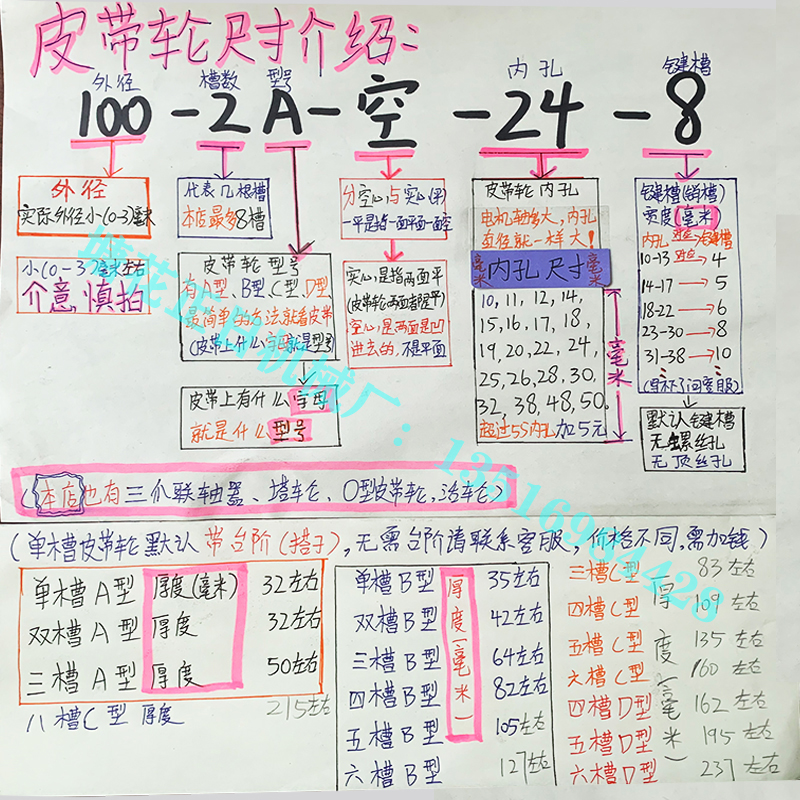 皮带轮尺寸介绍:
外径 槽数 型号 内孔 键槽
100-2A-空-24-8
外径
实际外径小(0-3)毫米
小(0-3)毫米左右
介意慎拍
代表几根槽
本店最多8槽
皮带轮型号
有A型、B型、C型、D型
最简单的办法就看皮带
(皮带上什么字母就是型号)
皮带上有什么字母
就是什么型号
分空心与实心(平)
一平是指一面平面一面空
实心,是指两面平
(皮带轮两面都是平)
空心,是两面是凹
进去的,不是平面
皮带轮内孔
电机轴多大,内孔
直径就一样大!
毫米 内孔尺寸 毫米
10, 11, 12, 14,
15, 16, 17, 18,
19, 20, 22, 24,
25, 26, 28, 30,
32, 38, 48, 50.
超过55内孔加5元
毫米
键槽(销槽)
宽度(毫米)
内孔 对应 键槽
10-13 对应→ 4
14-17 → 5
18-22 → 6
23-30 → 8
31-38 → 10
默认键槽
无螺丝孔
无顶丝孔
(本店也有三爪联轴器、塔轮、O型皮带轮,活轮)
(单槽皮带轮默认带台阶(搭子),无需台阶请联系客服,价格不同,需加钱)
单槽A型 厚度(毫米) 32左右
双槽A型 厚度 32左右
三槽A型 厚度 50左右
八槽C型 厚度 215左右
厚度(毫米)
单槽B型 35左右
双槽B型 42左右
三槽B型 64左右
四槽B型 82左右
五槽B型 105左右
六槽B型 127左右
厚度(毫米)
三槽C型 83左右
四槽C型 109左右
五槽C型 135左右
六槽C型 160左右
四槽D型 162左右
五槽D型 195左右
六槽D型 237左右
机械厂:13516984428